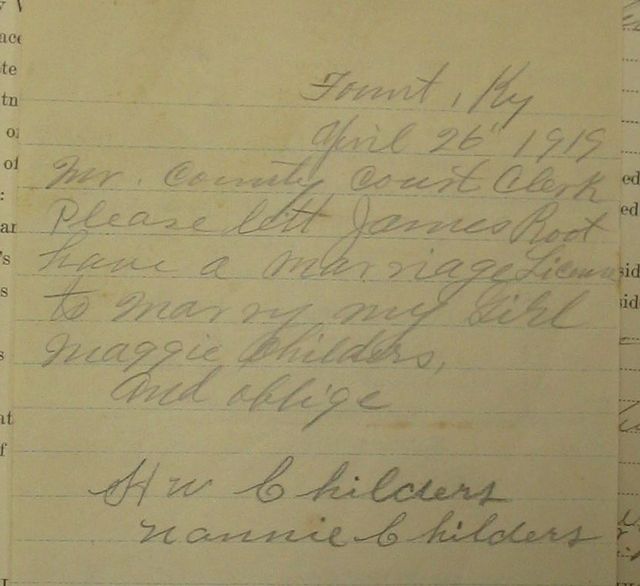 Fount, Ky
April 26 1919
Mr. County Court Clerk
Please lett James Root
have a marriage License
to marry my Girl
Maggie Childers,
and oblige
H W Childers
Nannie Childers